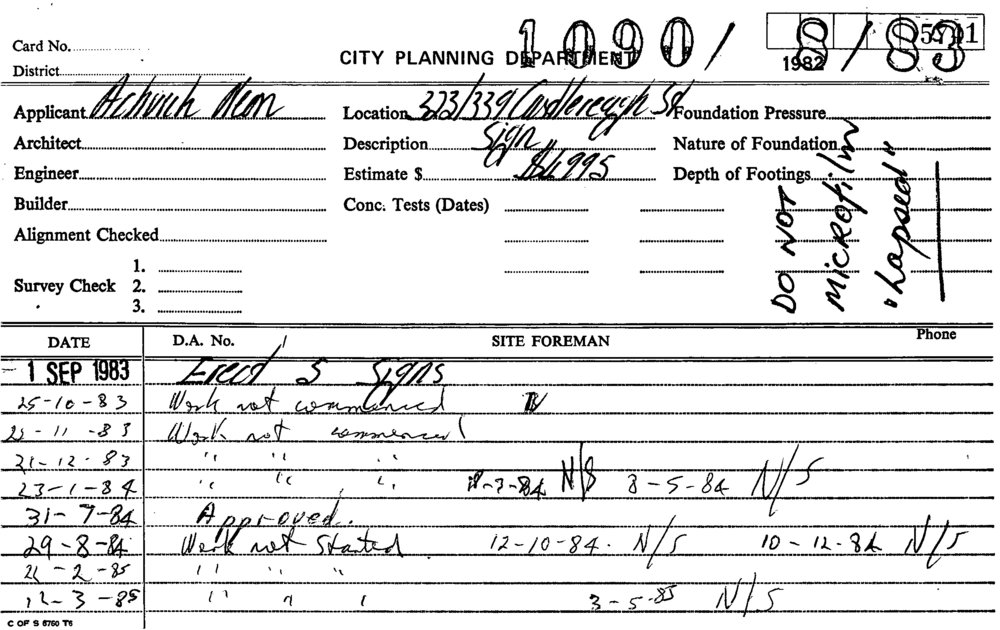 1090/8/83
5541
Card No.
CITY PLANNING DEPARTMENT
1982
District
Applicant Neon
Location 323/339 Castlereagh St
Foundation Pressure
Architect
Description Sign
Nature of Foundation
Engineer
Estimate $ $4995
Depth of Footings
Builder
Conc. Tests (Dates)
Alignment Checked
1.
Survey Check 2.
3.
DO NOT
MICROFILM
"Lapsed"
DATE D.A. No. SITE FOREMAN Phone
- 1 SEP 1983 Erect 5 Signs
25-10-83 Work not commenced
-11-83 Work not commenced
21-12-83 " " "
23-1-84 " " " -3-84 N/S 8-5-84 N/S
31-7-84 Approved.
29-8-84 Work not Started 12-10-84. N/S 10-12-84 N/S
21-2-85 " " "
12-3-85 " " " 3-5-85 N/S
C OF S 6760 T6